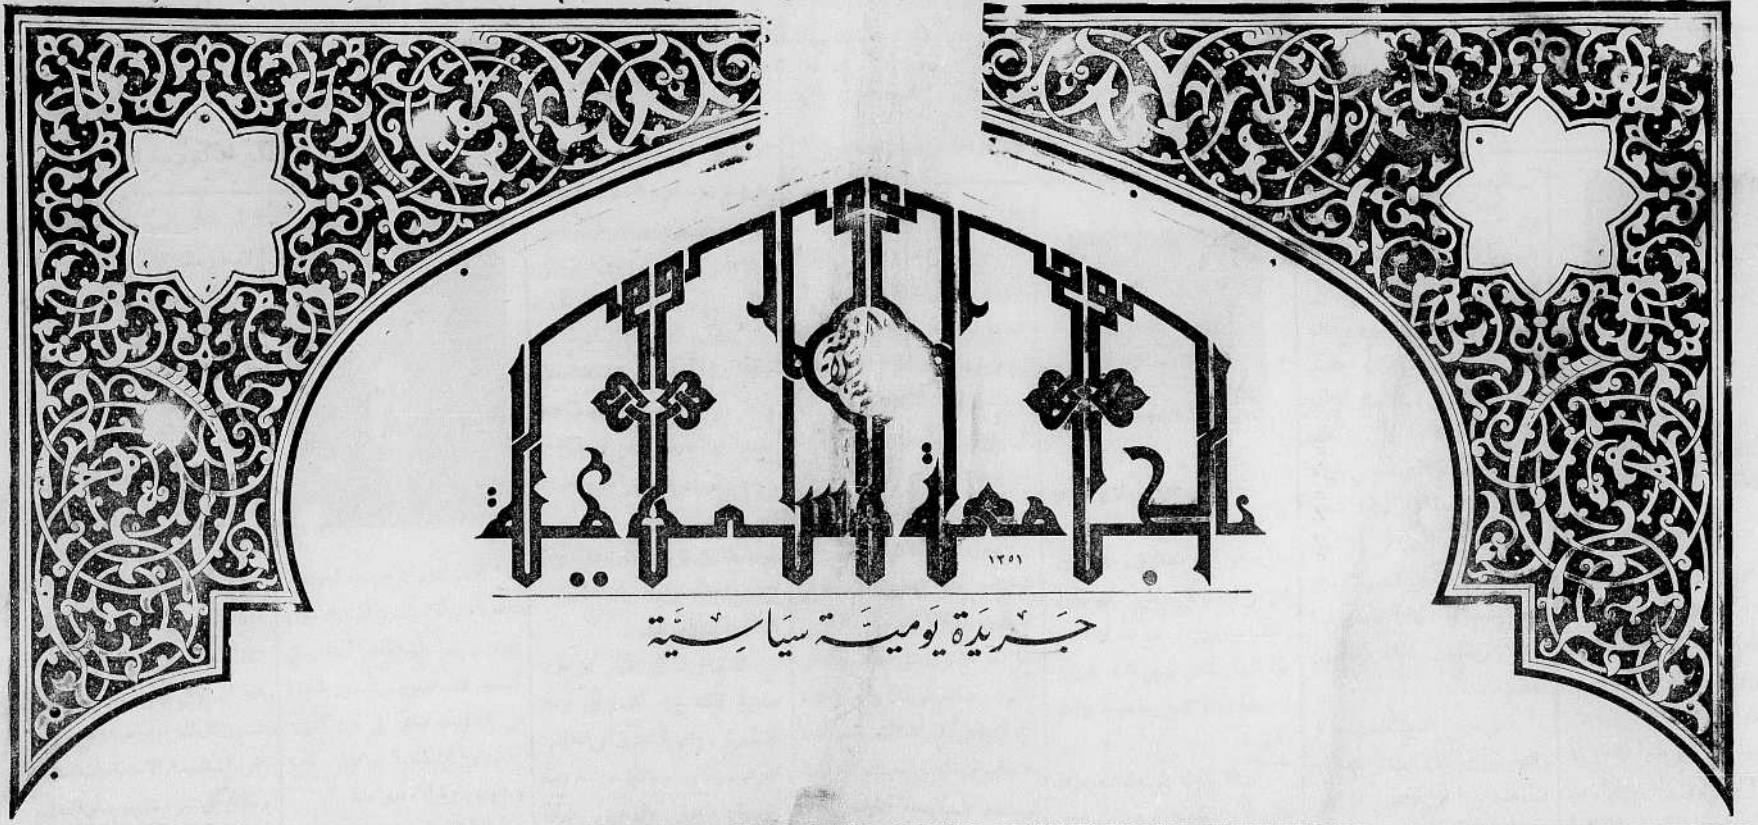 الجامعة الإسلامية
١٣٥١
جَريدَة يَوميَّة سيَاسِيَّة